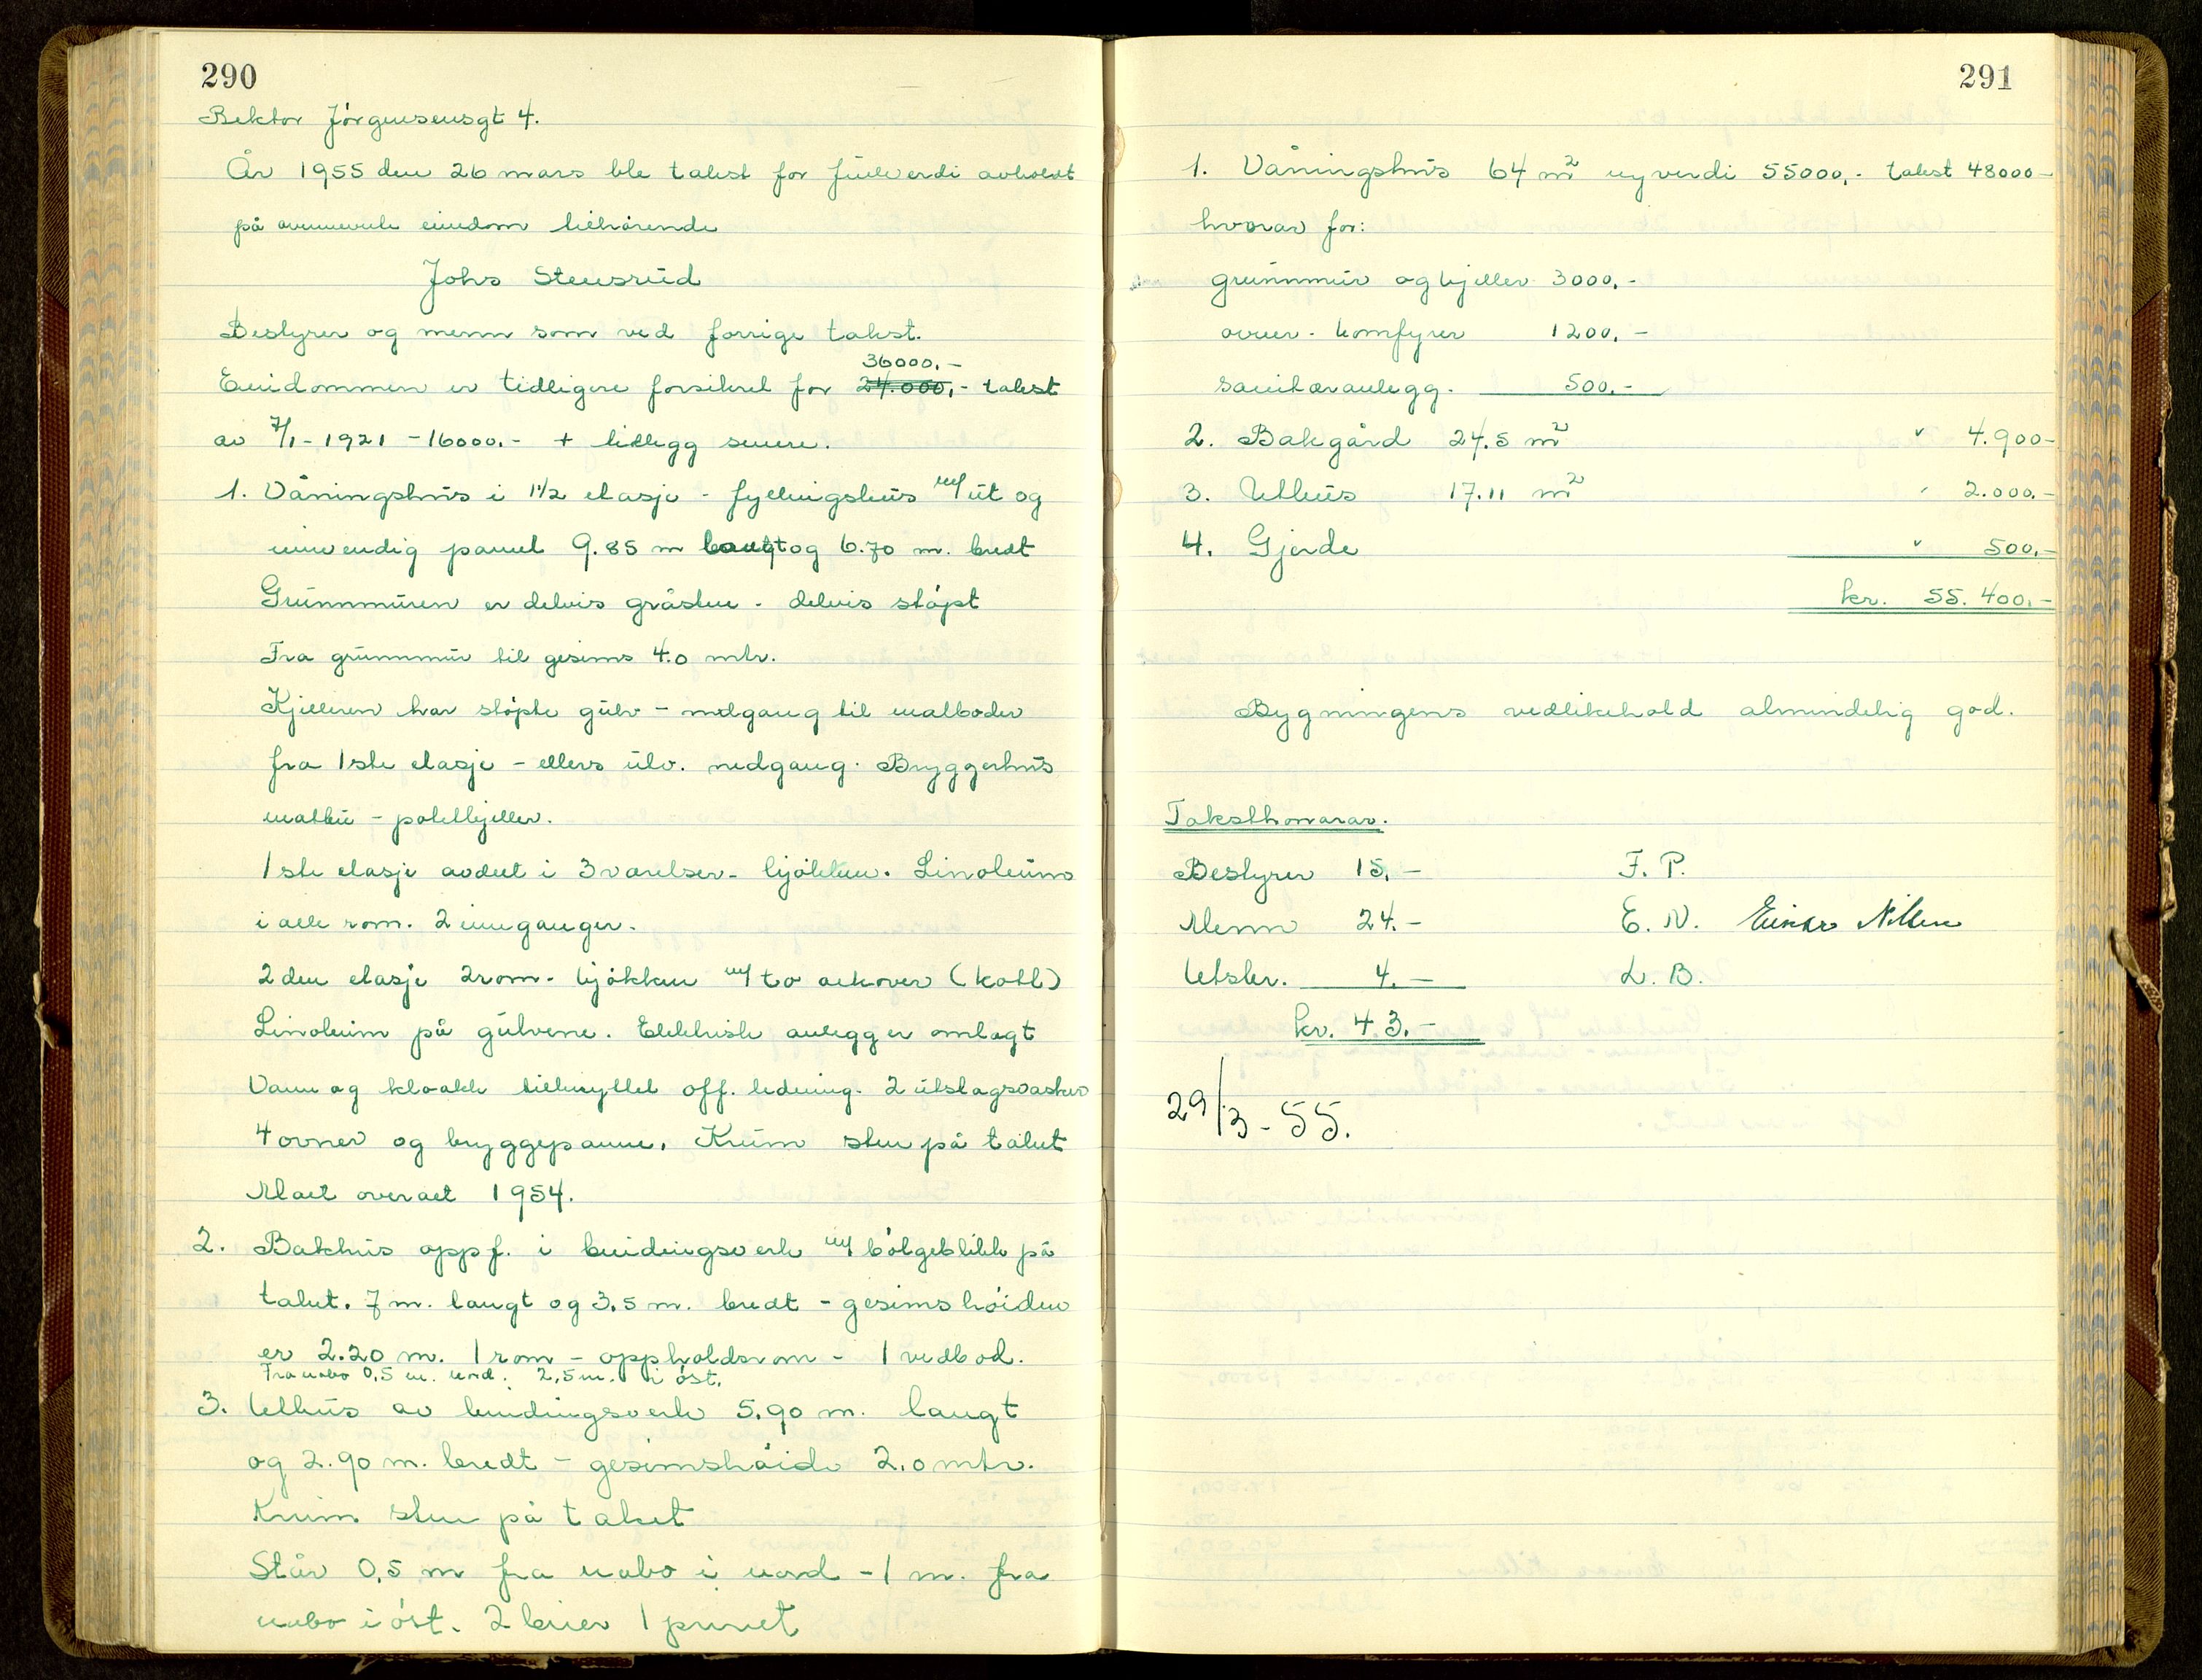 290
Rektor Jörgensensgt 4.
År 1955 den 26 mars ble takst for fullverdi avholdt
på ovennevnte eiendom tilhörende
Johs Stensrud
Bestyrer og menn som ved forrige takst.
36000.-
Eiendommen er tidligere forsikret for 24.000,- takst
av 7/1-1921 -16000.- + tillegg senere.
1. Våningshus i 1½ etasje - fyllingshus m/ ut og
innvendig panel 9.85 m langt og 6.70 m. bredt
Grunnmuren er delvis gråsten - delvis stöpt
Fra grunnmur til gesims 4.0 mtr.
Kjelleren har stöpte gulv - nedgang til matboder
fra 1ste etasje - ellers utv. nedgang. Bryggerhus
- potetkjeller.
1ste etasje avdelt i 3 værelser - kjökken. Linoleum
i alle rom. 2 innganger.
2den etasje 2 rom - kjökken m/ to alkover (kott)
Linoleum på gulvene. Elektrisk anlegg er omlagt
Vann og kloakk tilknyttet off. ledning. 2 utslagsvasker
4 ovner og bryggepanne. Krum sten på taket
Malt overalt 1954.
2. Bakhus oppf. i bindingsverk m/ bölgeblikk på
taket. 7 m. langt og 3.5 m. bredt - gesimshöiden
er 2.20 m. 1 rom - oppholdsrom - 1 vedbod.
Fra nabo 0,5 m. nord. 2,5 m. i öst.
3. Uthus av bindingsverk 5.90 m. langt
og 2.90 m. bredt - gesimshöide 2.0 mtr.
Krum sten på taket
Står 0,5 m fra nabo i nord - 1 m. fra
nabo i öst. 2 binger 1 privet
291
1. Våningshus 64 m² nyverdi 55000,- takst 48000-
hvorav for:
grunnmur og kjeller 3000,-
ovner - komfyrer 1200,-
sanitæranlegg. 500,-
2. Bakgård 24.5 m² " 4.900-
3. Uthus 17.11 m² " 2.000.-
4. Gjerde " 500.-
kr. 55.400.-
Bygningens vedlikehold almindelig god.
Taksthonorar.
Bestyrer 15,- F. P.
Menn 24.- E. N. Einar Nilsen
Utskr. 4.- L. B.
kr. 43.-
29/3-55.